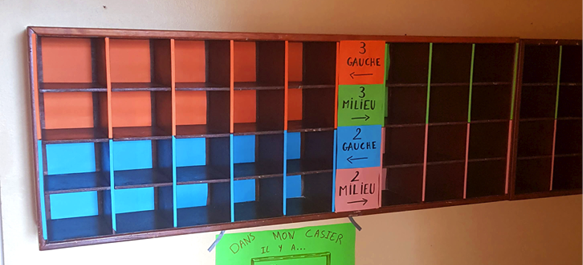 3
GAUCHE
←
3
MILIEU
→
2
GAUCHE
←
2
MILIEU
→
DANS MON CASIER
IL Y A...